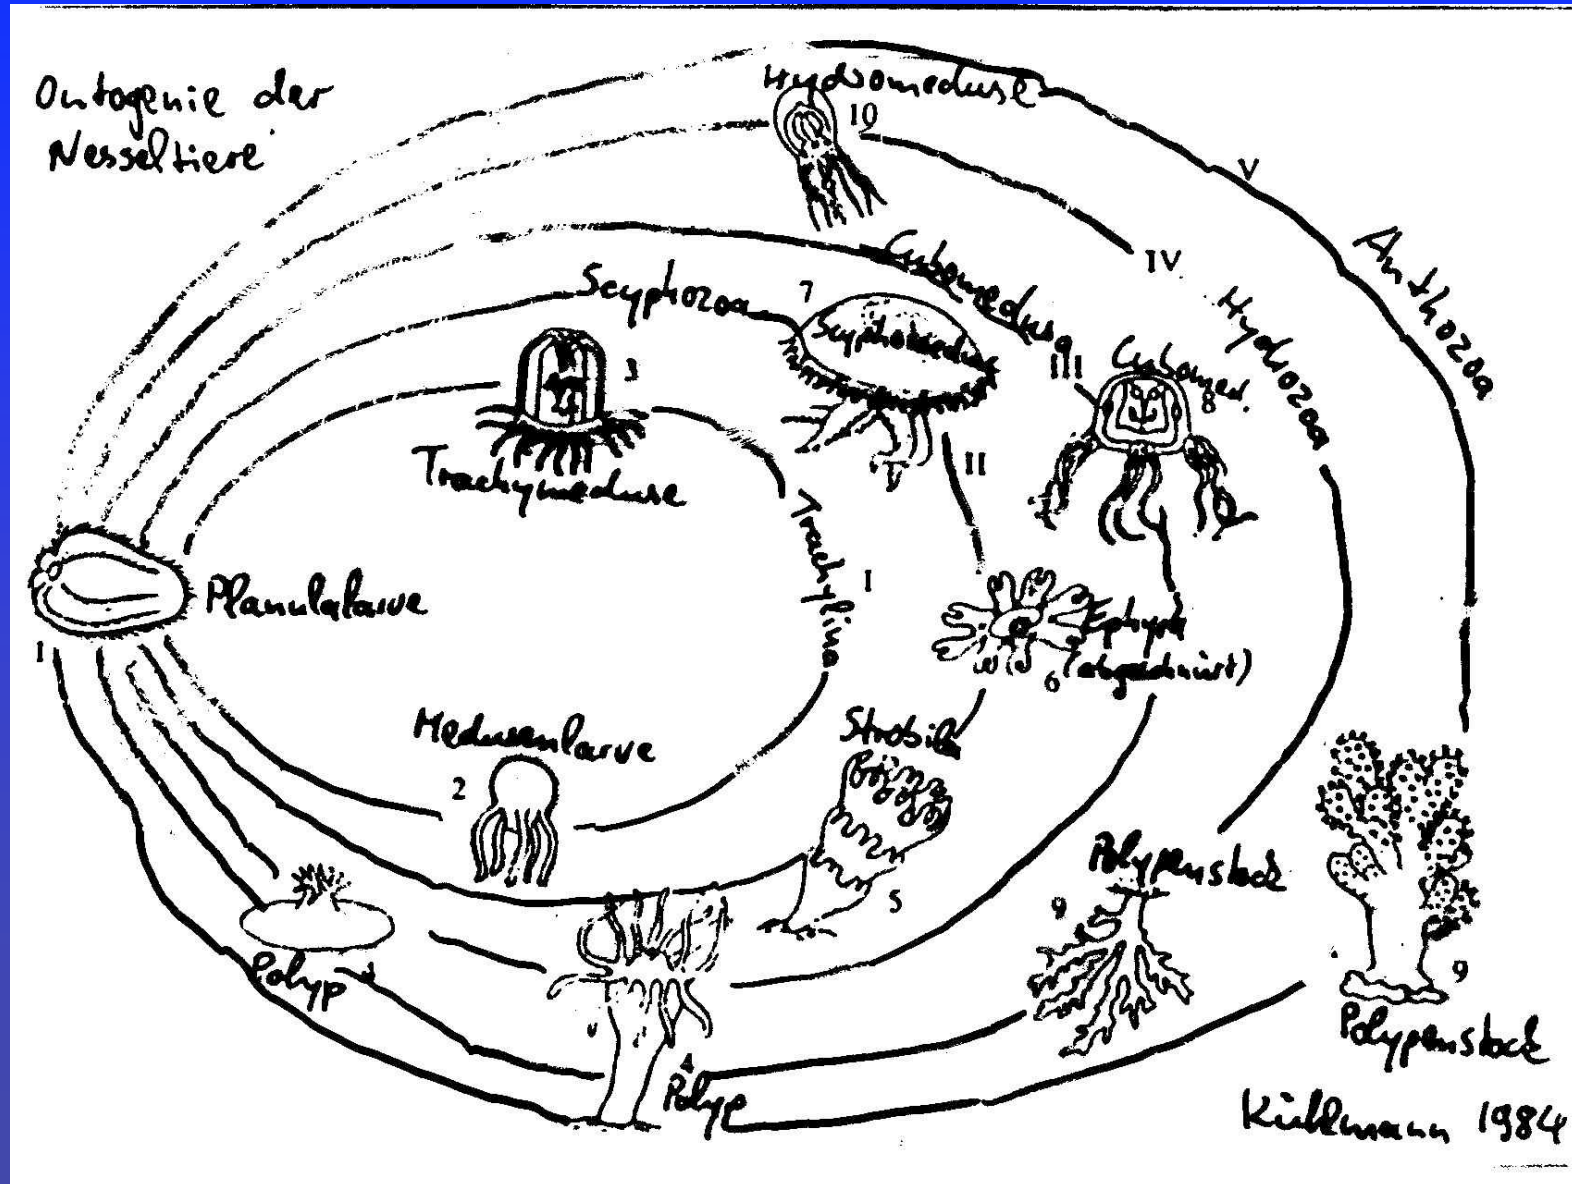 Ontogenie der
Nesseltiere
Hydromeduse
10
V
Anthozoa
IV
Hydrozoa
Cubomedusa
III
Cubomed.
8
Scyphozoa
7
Scyphomeduse
II
3
Trachymeduse
Trachylina
I
Planulalarve
1
Ephyra
(abgeschnürt)
6
Medusenlarve
2
Strobila
5
Polypenstock
9
Polyp
4
Polyp
9
Polypenstock
Kühlmann 1984